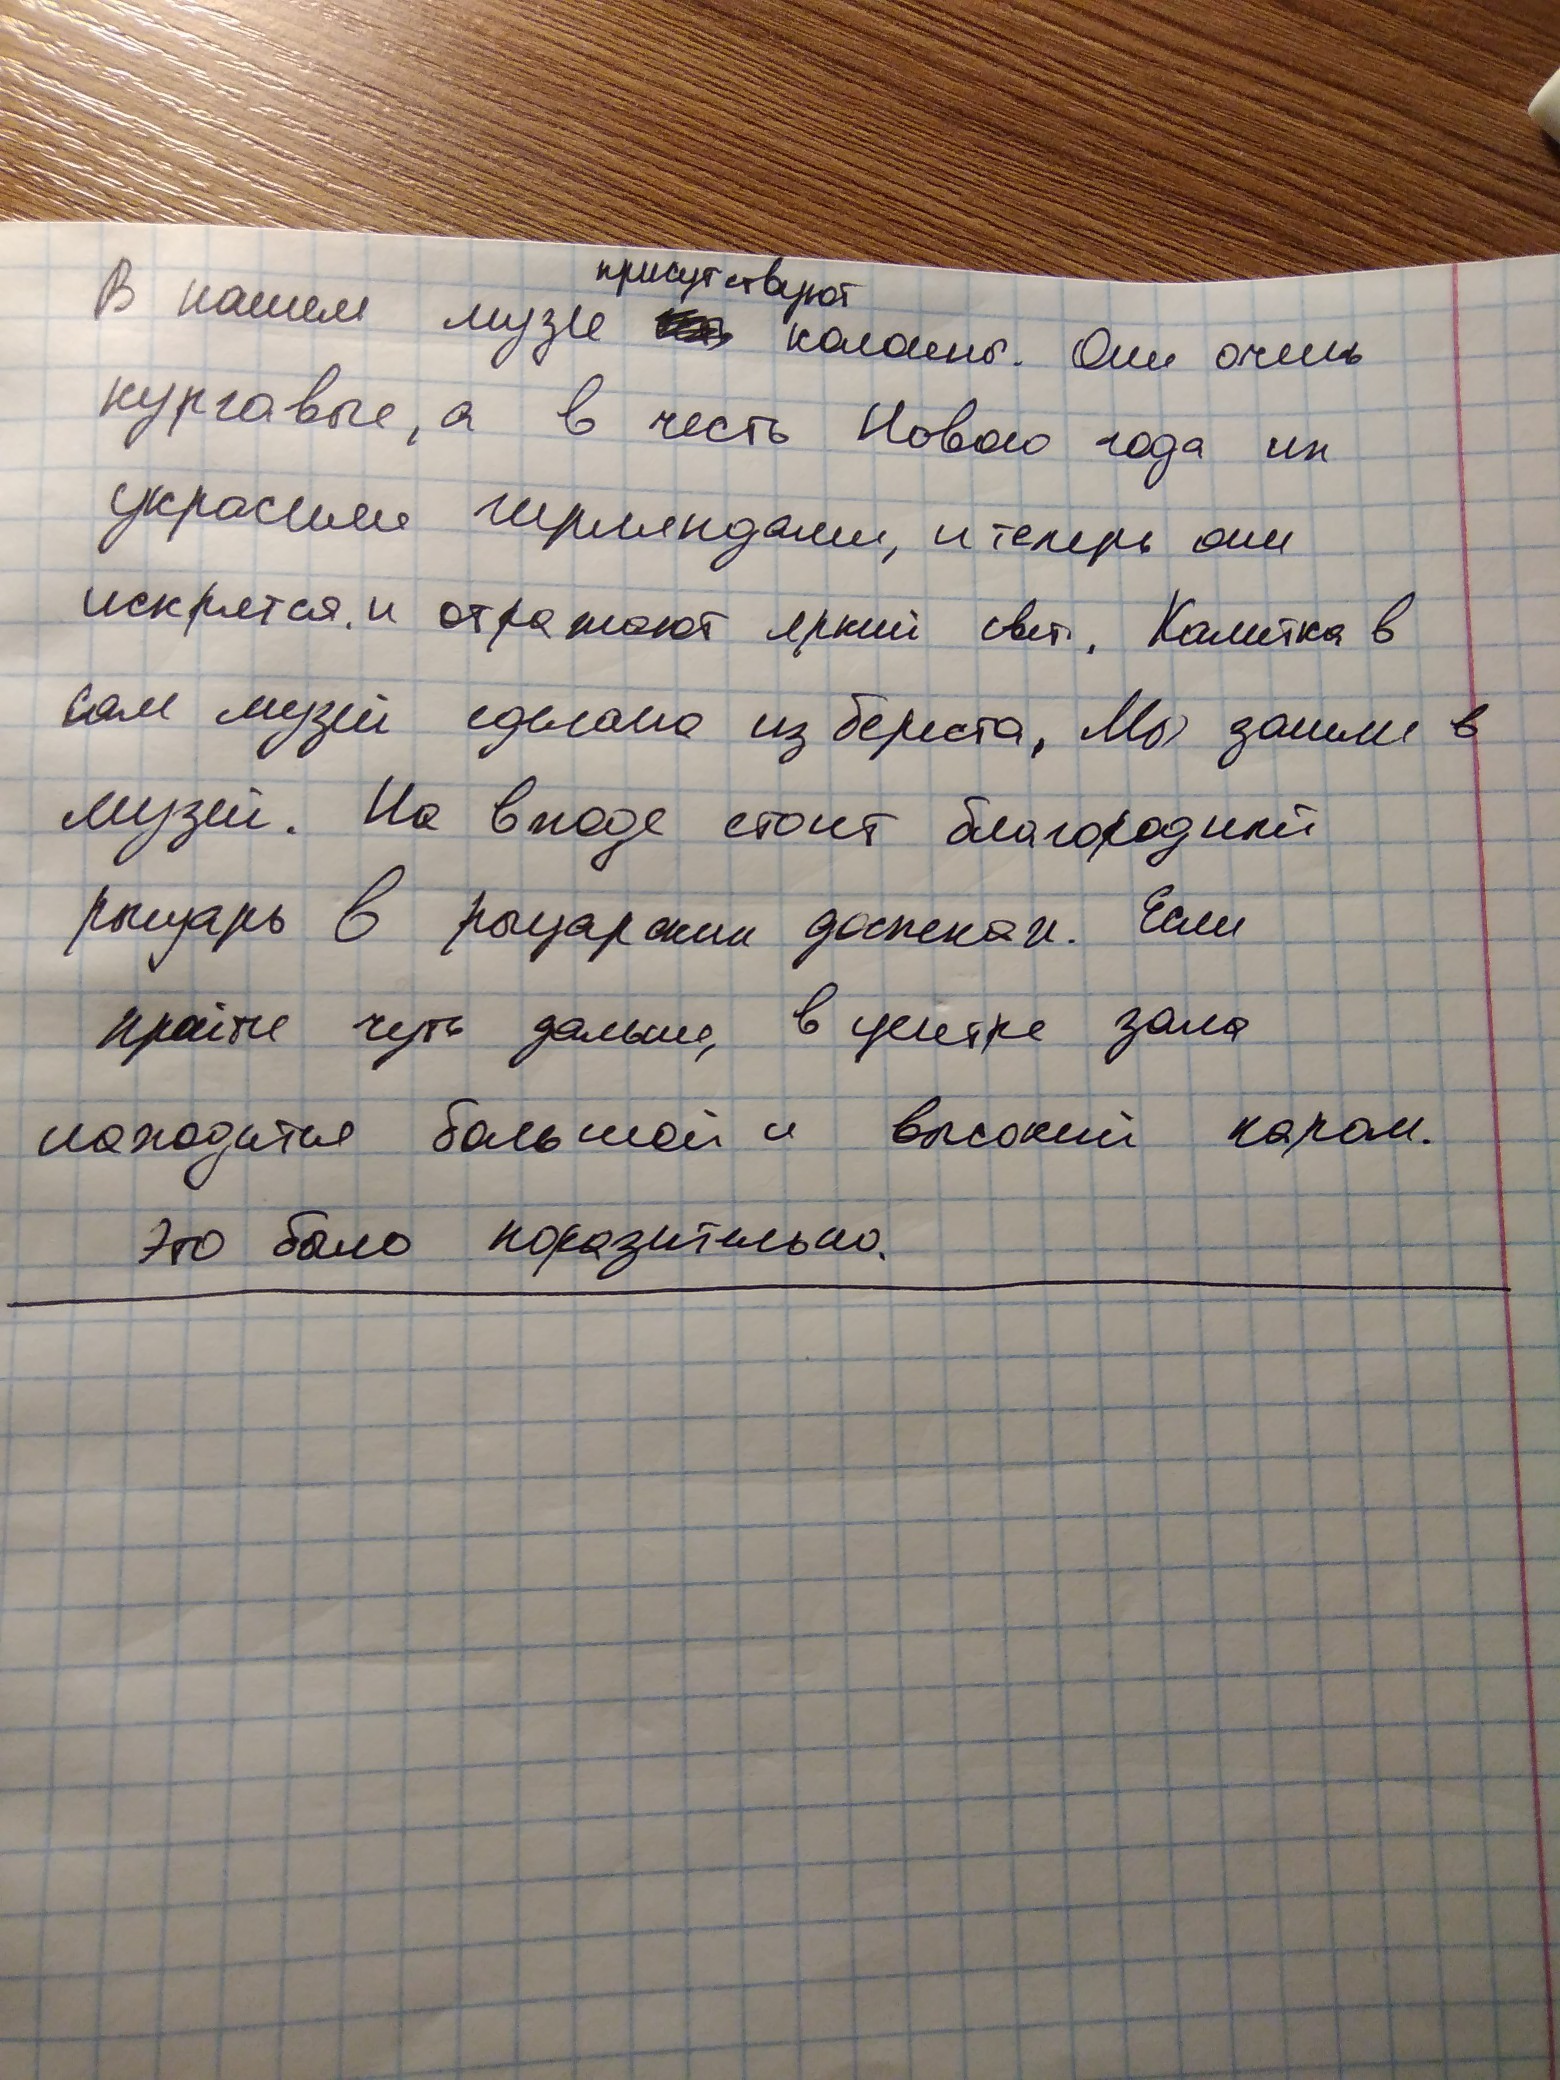 В нашем музее присутствуют колоны. Они очень
кургавые, а в честь Нового года их
украсили гирляндами, и теперь они
искрятся и отражают яркий свет. Калитка в
сам музей сделана из береста, Мы зашли в
музей. На входе стоит благородный
рыцарь в рыцарских доспехах. Если
пройти чуть дальше, в центре зала
находится большой и высокий
Это было поразительно.